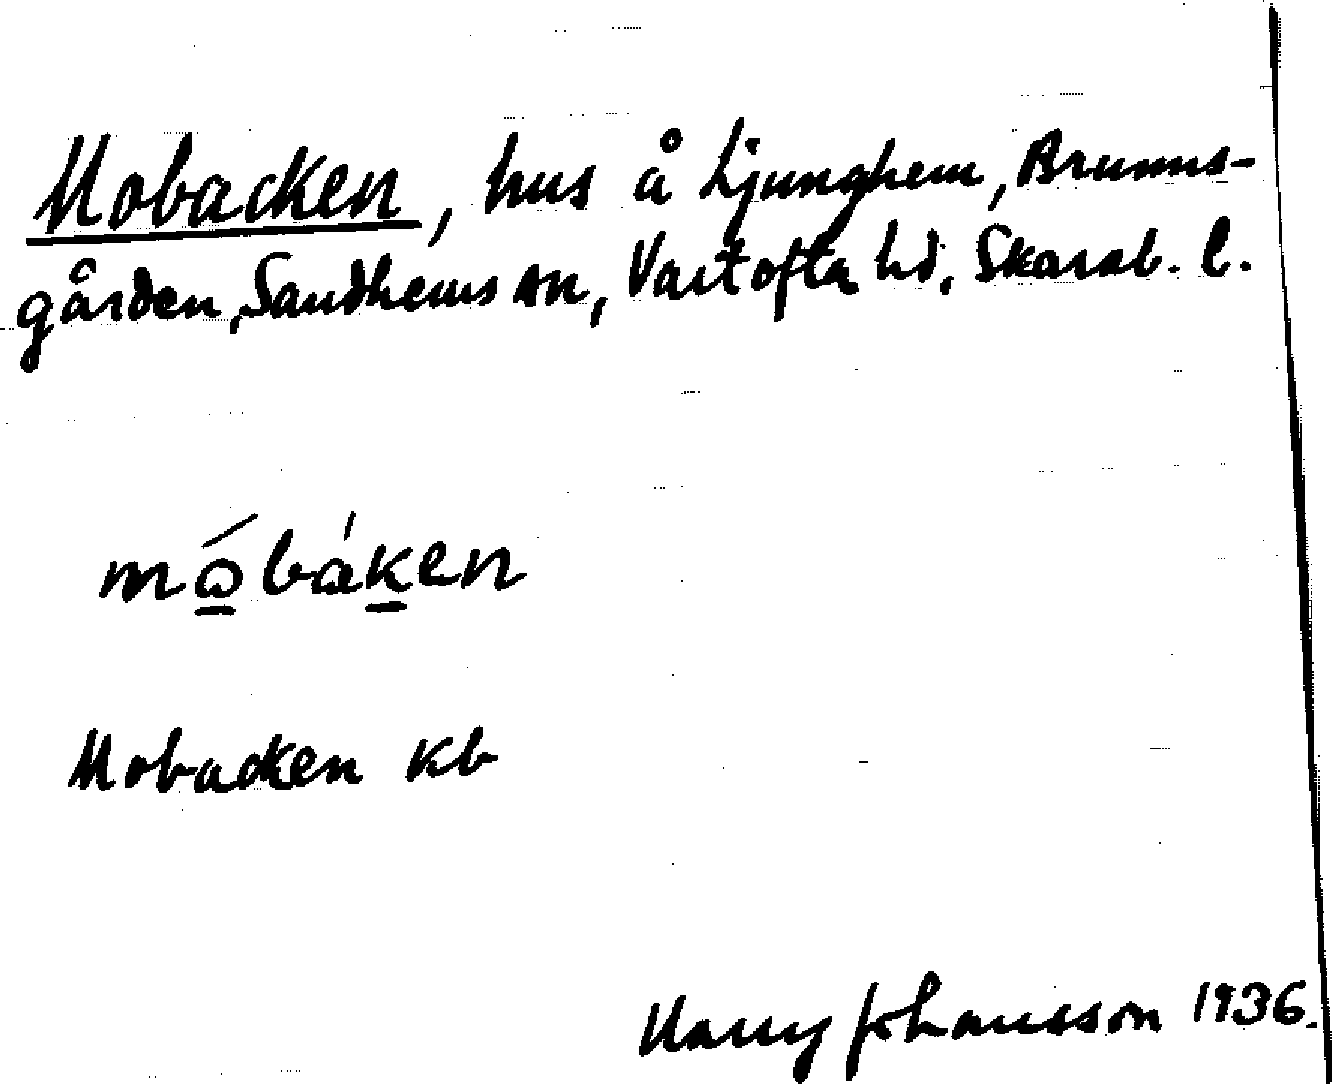 Mobacken, hus å Ljunghem, Brunns-
gården, Sandhems sn, Vartofta hd, Skarab. l.
mɷ̱́báḵen
Mobacken kb
Harry Johansson 1936.